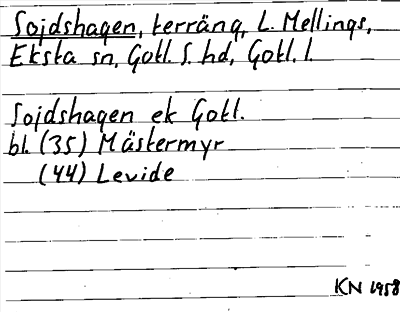 Sojdshagen, terräng, L. Mellings,
Eksta sn, Gotl. S. hd, Gotl. l.
Sojdshagen ek Gotl.
bl. (35) Mästermyr
(44) Levide
KN 1958